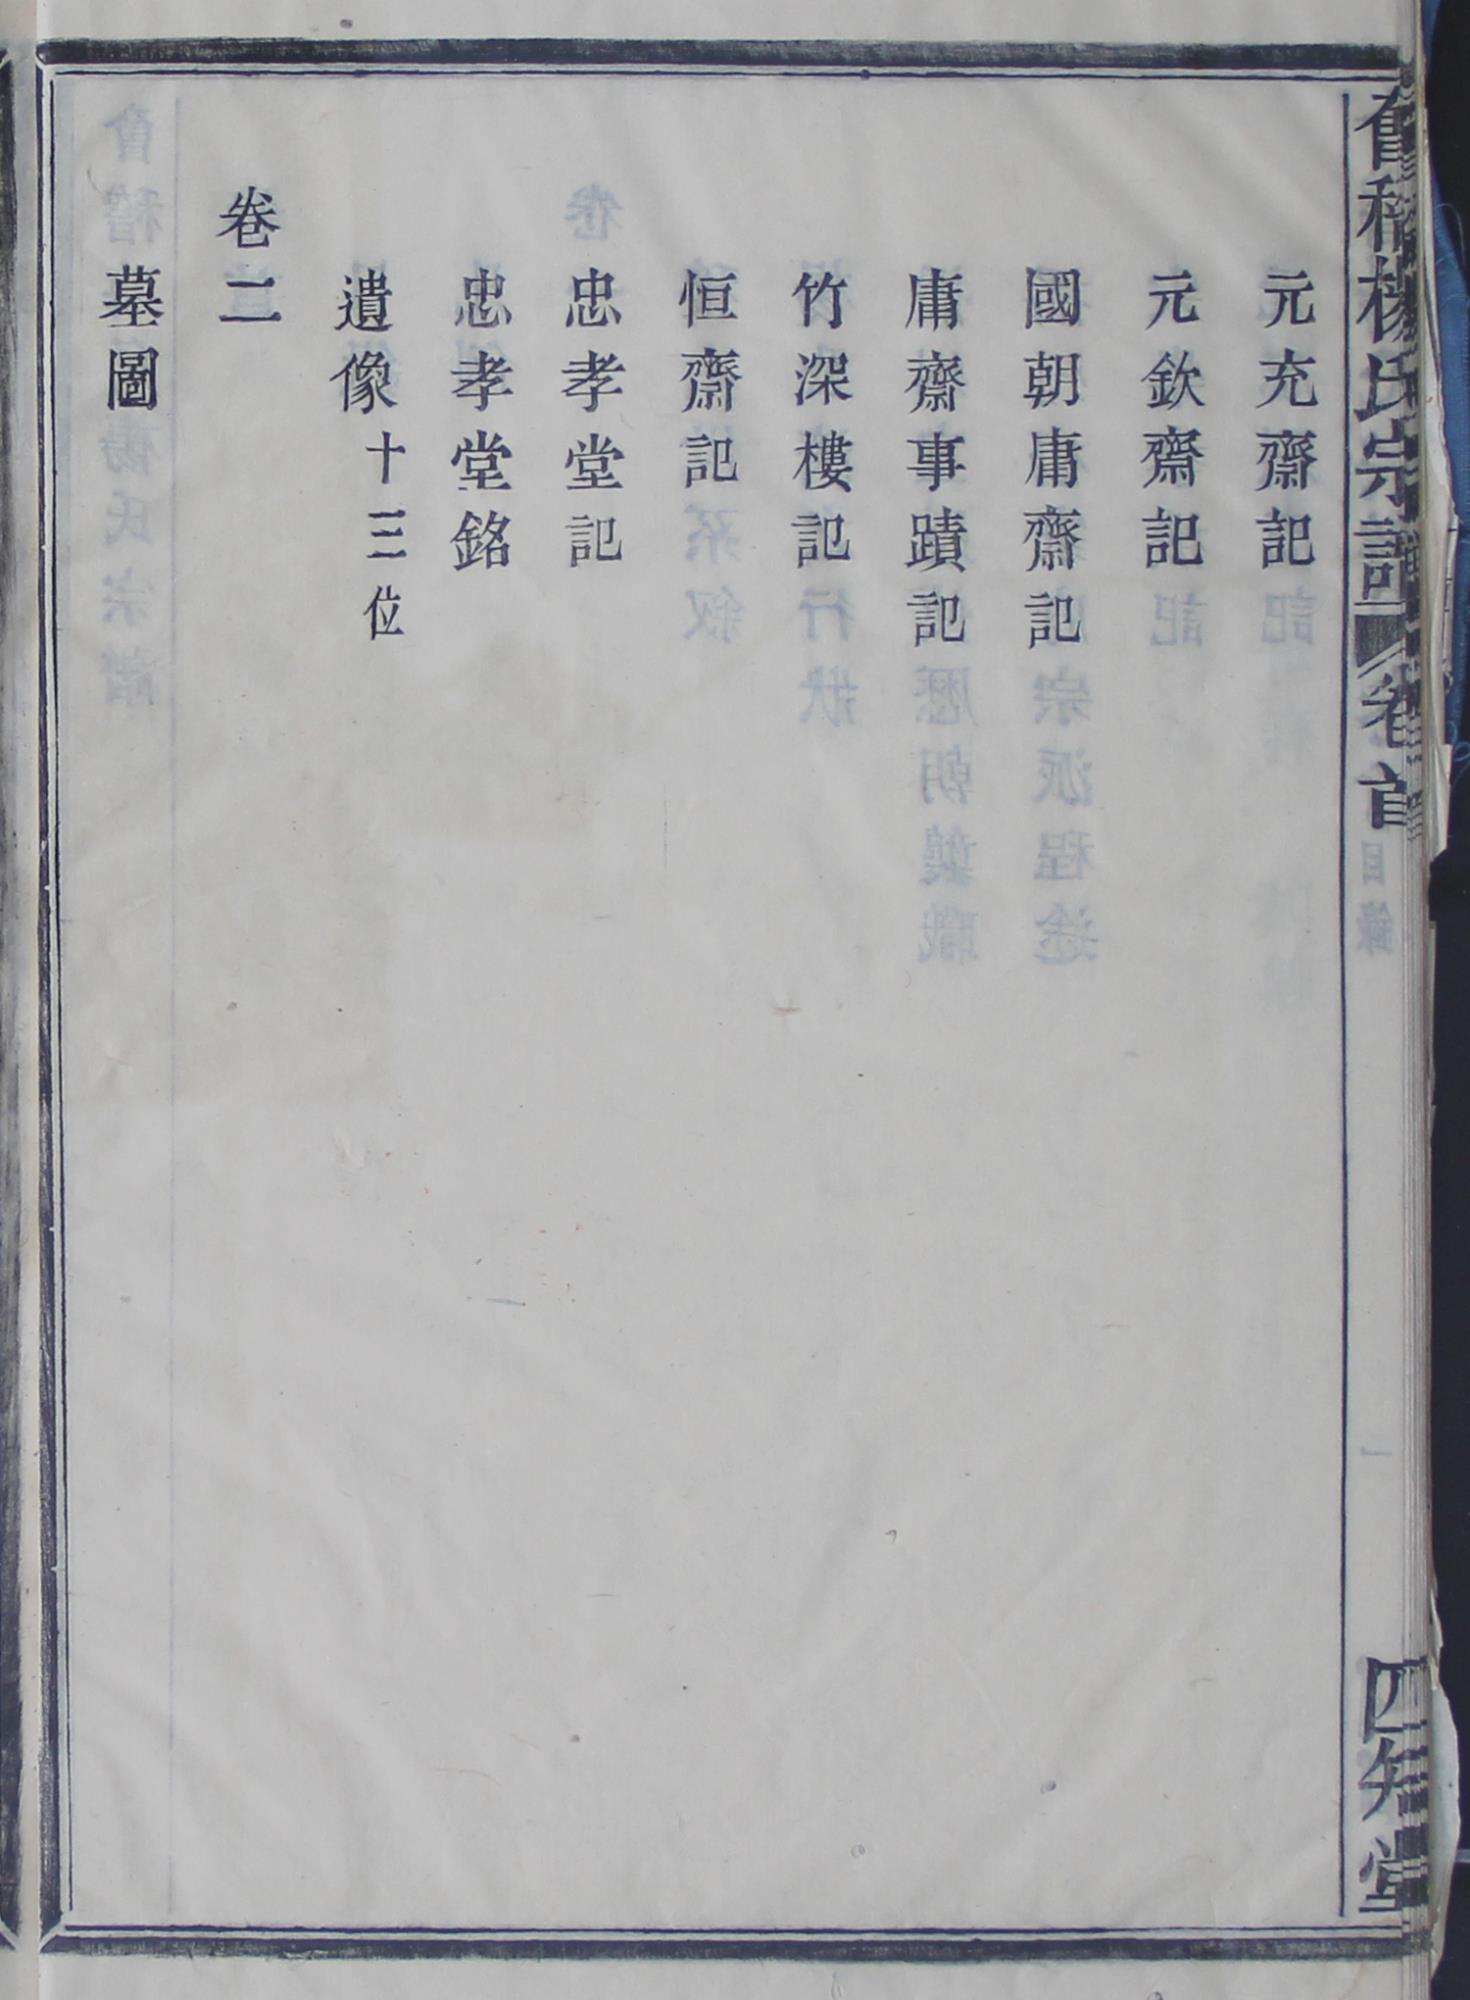 會稽楊氏宗譜 卷首 目錄 一 四知堂
元充齋記
元欽齋記
國朝庸齋記
庸齋事蹟記
竹深樓記
恒齋記
忠孝堂記
忠孝堂銘
遺像十三位
卷二
墓圖